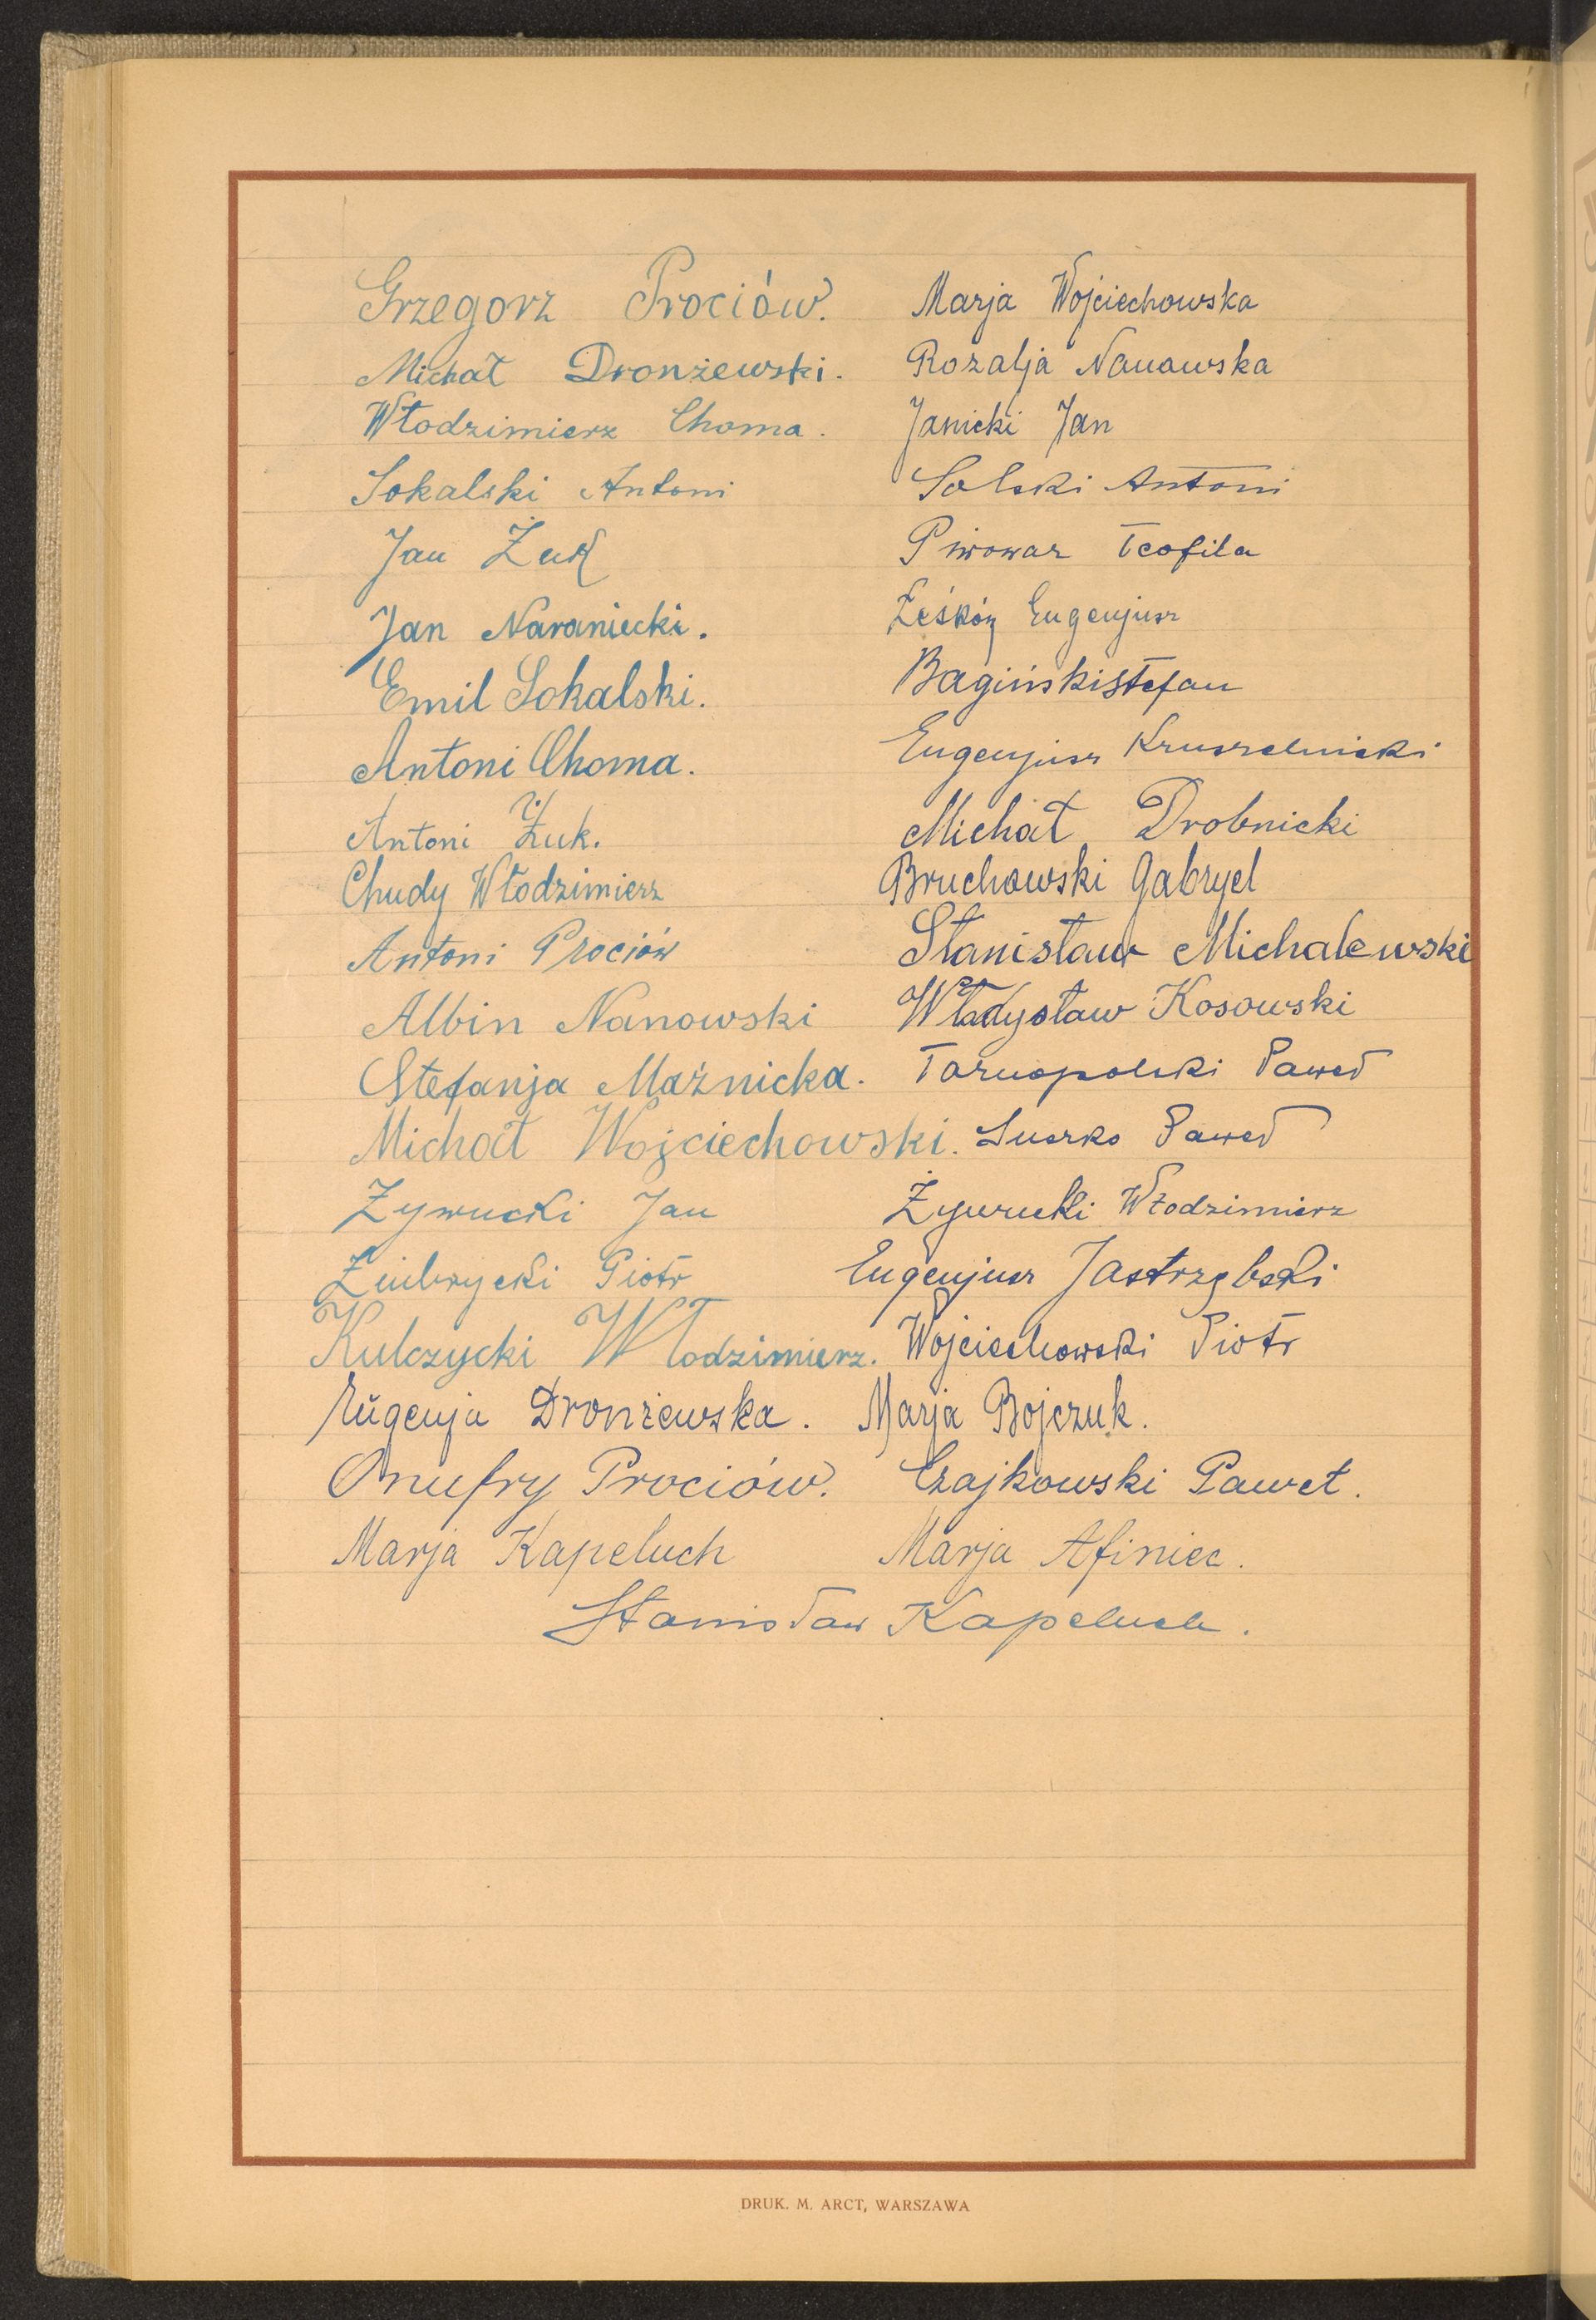 Grzegorz Prociów. Marja Wojciechowska
Michał Dronżewski. Rozalja Nanowska
Włodzimierz Choma. Janicki Jan
Sokalski Antoni Solski Antoni
Jan Żuk Piwowar Teofila
Jan Naraniecki. Eugenjusz
Emil Sokalski. Bagiński Stefan
Antoni Choma. Eugenjusz Kruszelnicki
Antoni Żuk. Michał Drobnicki
Chudy Włodzimierz Bruchowski Gabryel
Antoni Prociów Stanisław Michalewski
Albin Nanowski Władysław Kosowski
Stefanja Maźnicka. Tarnopolski Paweł
Michał Wojciechowski. Paweł
Żywucki Jan Żywucki Włodzimierz
Piotr Eugenjusz Jastrzębski
Kulczycki Włodzimierz. Wojciechowski Piotr
Eugenja Dronżewska. Marja Bojczuk.
Onufry Prociów. Czajkowski Paweł.
Marja Kapeluch Marja Afiniec.
Stanisław Kapeluch.
DRUK. M. ARCT, WARSZAWA